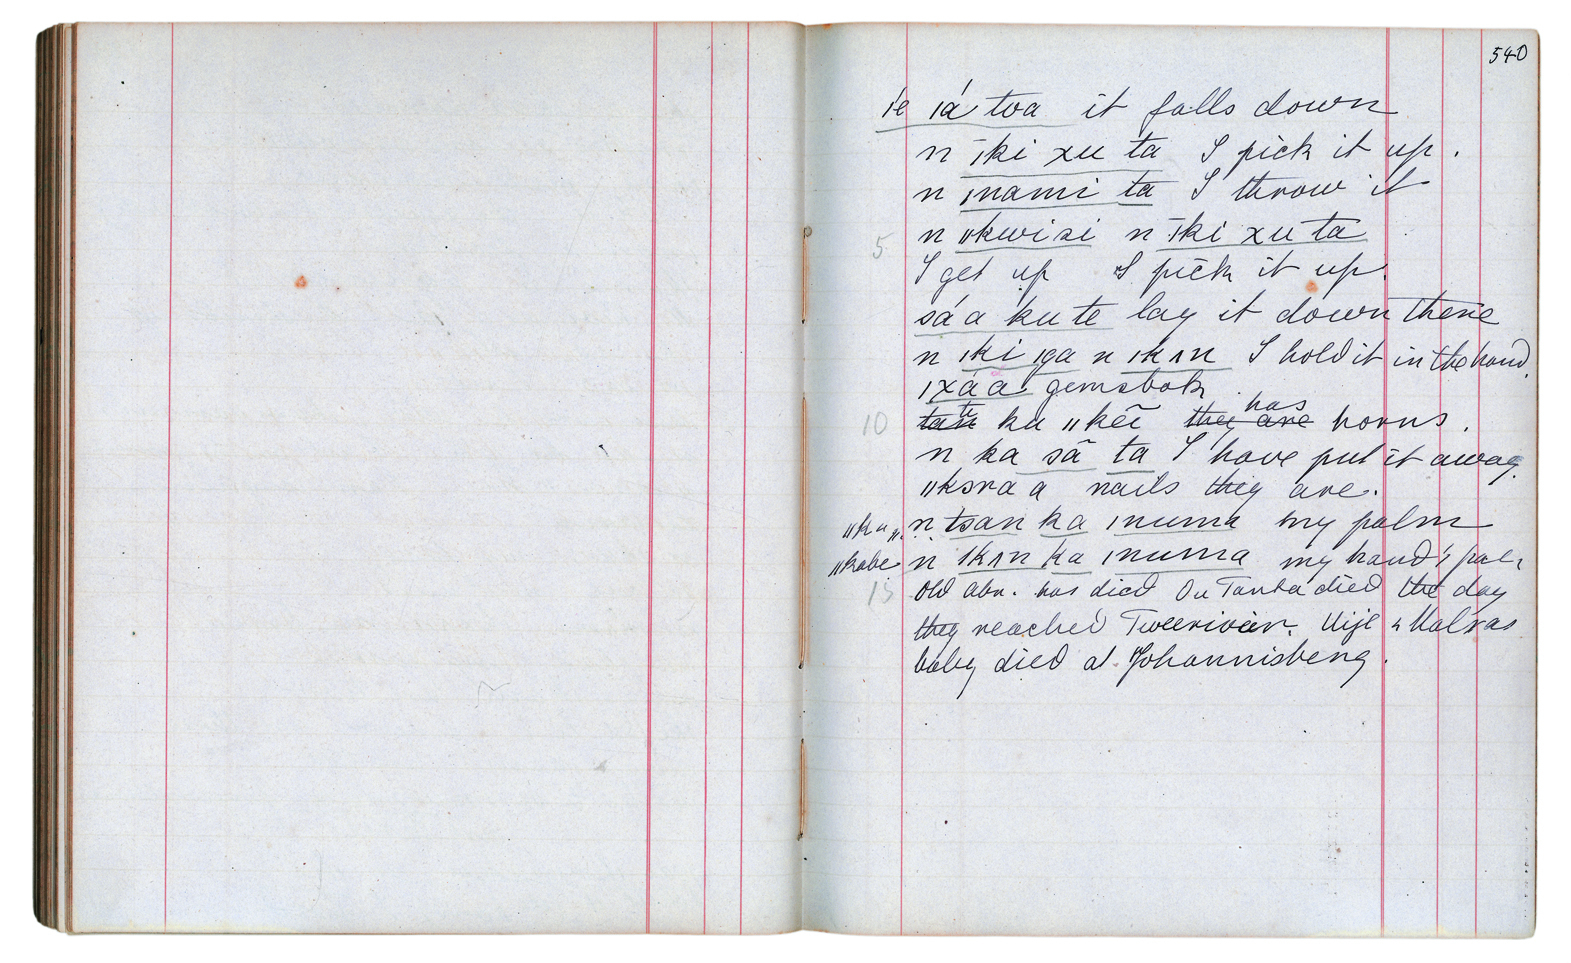 540
ǀe ǀá toa it falls down
n ǀki xu ta I pick it up.
n ǀnami ta I throw it
5 n ǁkwisi n ǀki xu ta
I get up I pick it up.
sá a ku te lay it down there
n ǀki ǀga n ǀkʌn I hold it in the hand.
ǀxá a gemsbok
10 ku ǁkẽĩ they are has horns.
n ka sã ta I have put it away.
nails they are.
n tsan ka ǀnuma my palm
ǁkabe n ǀkʌn ka ǀnuma my hand's
15 Old has died Ou Tanta died the day
they reached Tweerivier.
baby died at Johannisberg.